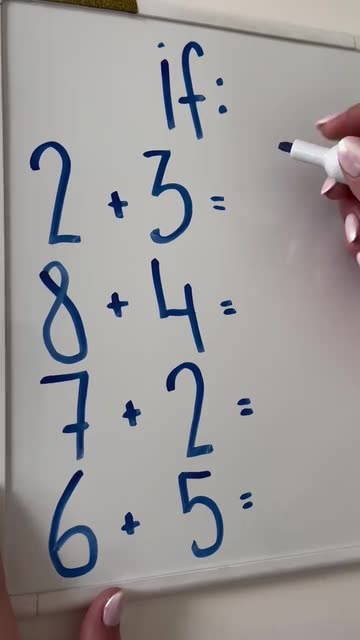 if:
2 + 3 =
8 + 4 =
7 + 2 =
6 + 5 =